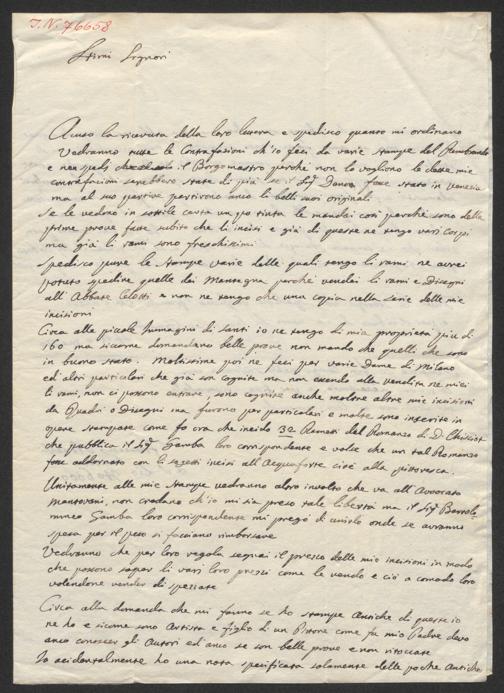 I.N. 76658
Stimi Signori
Acuso la ricevuta della loro lettera e spedisco quanto mi ordinano
Vedranno tutte le Contrafazioni ch'io feci da varie stampe del Rembrando
e non spedj il Borgomastro perchè non lo vogliono le dette mie
contrafazioni sarebbero state di più se il Sigr Denon fosse stato in Venezia
ma al suo partire partirono anco li belli suoi originali
Se le vedono in sottile carta un po tinta le mandai così perchè sono delle
prime prove fatte subito che li incisi e già di queste ne tengo vari corpi
ma già li rami sono freschissimi
Spedisco pure le stampe varie delle quali tengo li rami, ne avrei
potuto spedire quelle dei Mantegna perchè vendei li rami e Disegni
all'Abbate Celotti e non ne tengo che una copia nella serie delle mie
incisioni
Circa alle picole Immagini di Santi io ne tengo di mia proprietà più di
160 ma sicome domandano belle prove non mando che quelli che sono
in buono stato. Moltissime poi ne feci per varie Dame di Milano
ed altri particolari che già son cognite ma non essendo alla vendita ne miei
li rami, non ci possono entrare, sono cognite anche moltre altre mie incisioni
da Quadri o Disegni ma furono per particolari e molte sono inserite in
opere stampate come fo ora che incido 32 Ramati del Romanzo di D. Chisciot
che pubblica il Sigr Gamba loro corrispondente e volse che un tal Romanzo
fosse addornato con li sogetti incisi all'Acquaforte cioè alla pitoresca.
Unitamente alle mie Stampe vedranno altro involto che va all'Avocato
Mantovani, non credano ch'io mi sia preso tale libertà ma il Sigr Bartolo=
mmeo Gamba loro corrispondente mi pregò di unirlo onde se avranno
spesa per il peso si facciano rimborsare
Vedranno che per loro regola segnai il prezzo delle mie incisioni in modo
che possono saper li vari loro prezzi come le vendo e ciò a comodo loro
volendone vender di spezzate
Circa alla domanda che mi fanno se ho stampe Antiche di queste io
ne ho e sicome sono Artista e figlio di un Pittore come fu mio Padre devo
anco conoscer gli Autori ed anco se son belle prove e non ritoccate
Io acidentalmente ho una nota specificata solamente delle poche Antiche